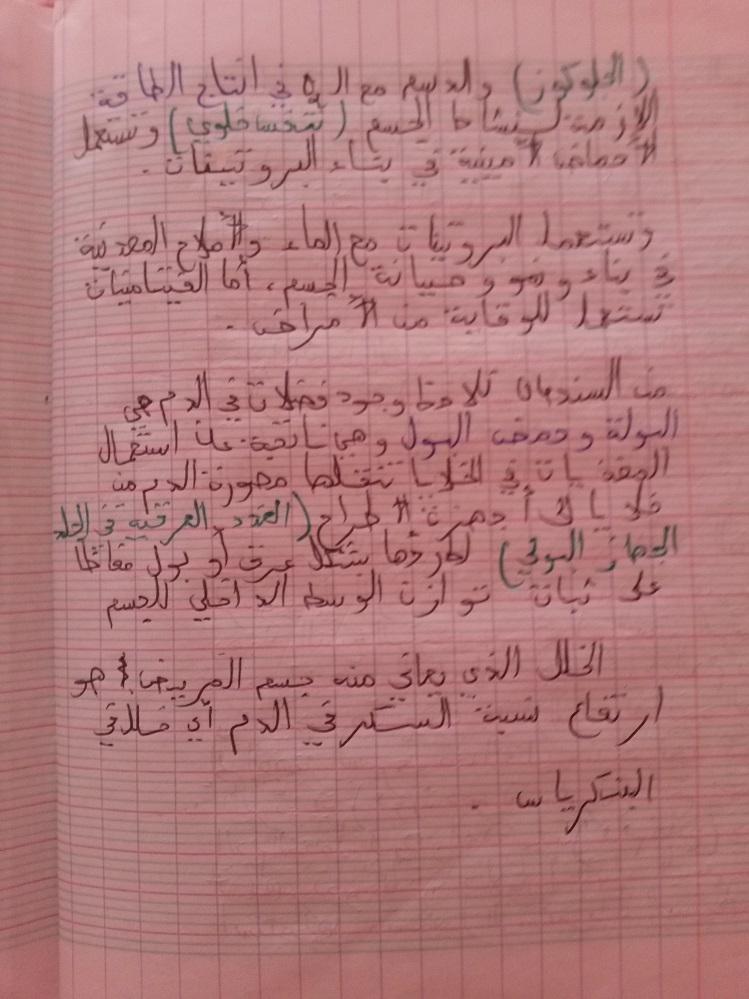 (الجلوكوز) والدسم مع الـ O2 في انتاج الطاقة
الازمة لنشاط الجسم (تنفس خلوي) وتستعمل
الأحماض الأمينية في بناء البروتينات.
وتستعمل البروتينات مع الماء والأملاح المعدنية
في بناء ونمو وصيانة الجسم، أما الفيتامينات
تستعمل للوقاية من الأمراض.
من السند 04 نلاحظ وجود فضلات في الدم هي
البولة وحمض البول وهي ناتجة عن استعمال
المغذيات في الخلايا تنقلها الدم من
خلايا الى أجهزة الاطراح (الغدد العرقية في الجلد
الجهاز البولي) لطردها بشكل عرق أو بول حفاظا
على ثبات توازن الوسط الداخلي للجسم
الخلل الذي يعاني منه جسم المريض هو
ارتفاع نسبة السكر في الدم أي خلل في
البنكرياس.